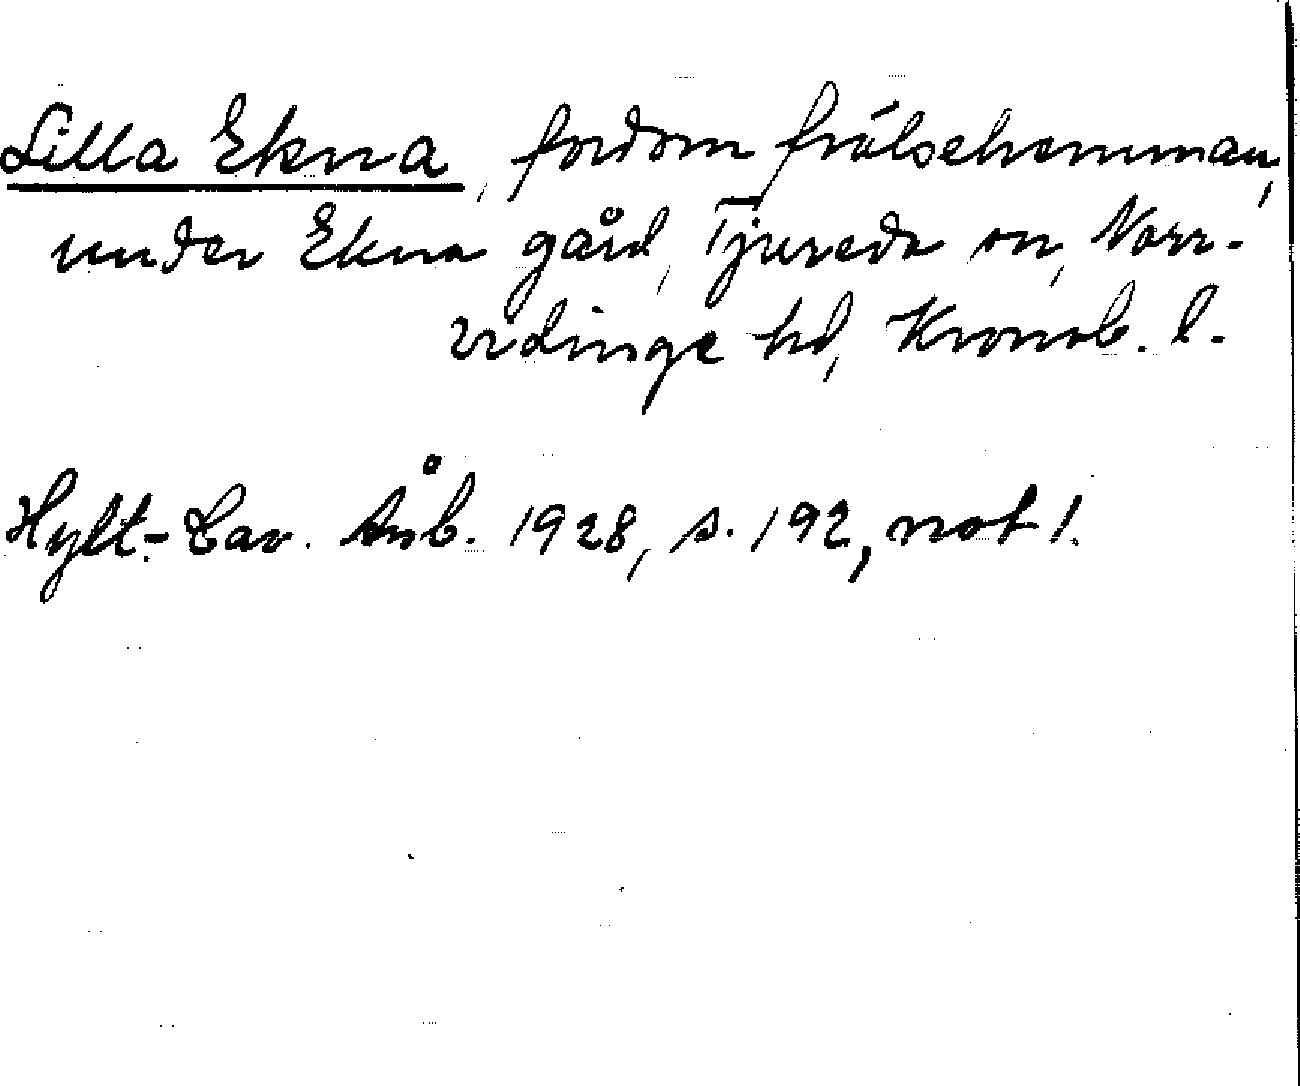 Lilla Ekna, fordom frälsehemman,
under Ekna gård, Tjureda sn, Norr-
vidinge hd, Kronob. l.
Hylt.-Cav. Årsb. 1928, s. 192, not 1.